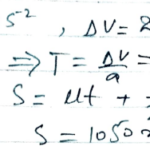 s⁻² , ΔV = 2
⇒ T = ΔV/a =
S = ut +
S = 1050